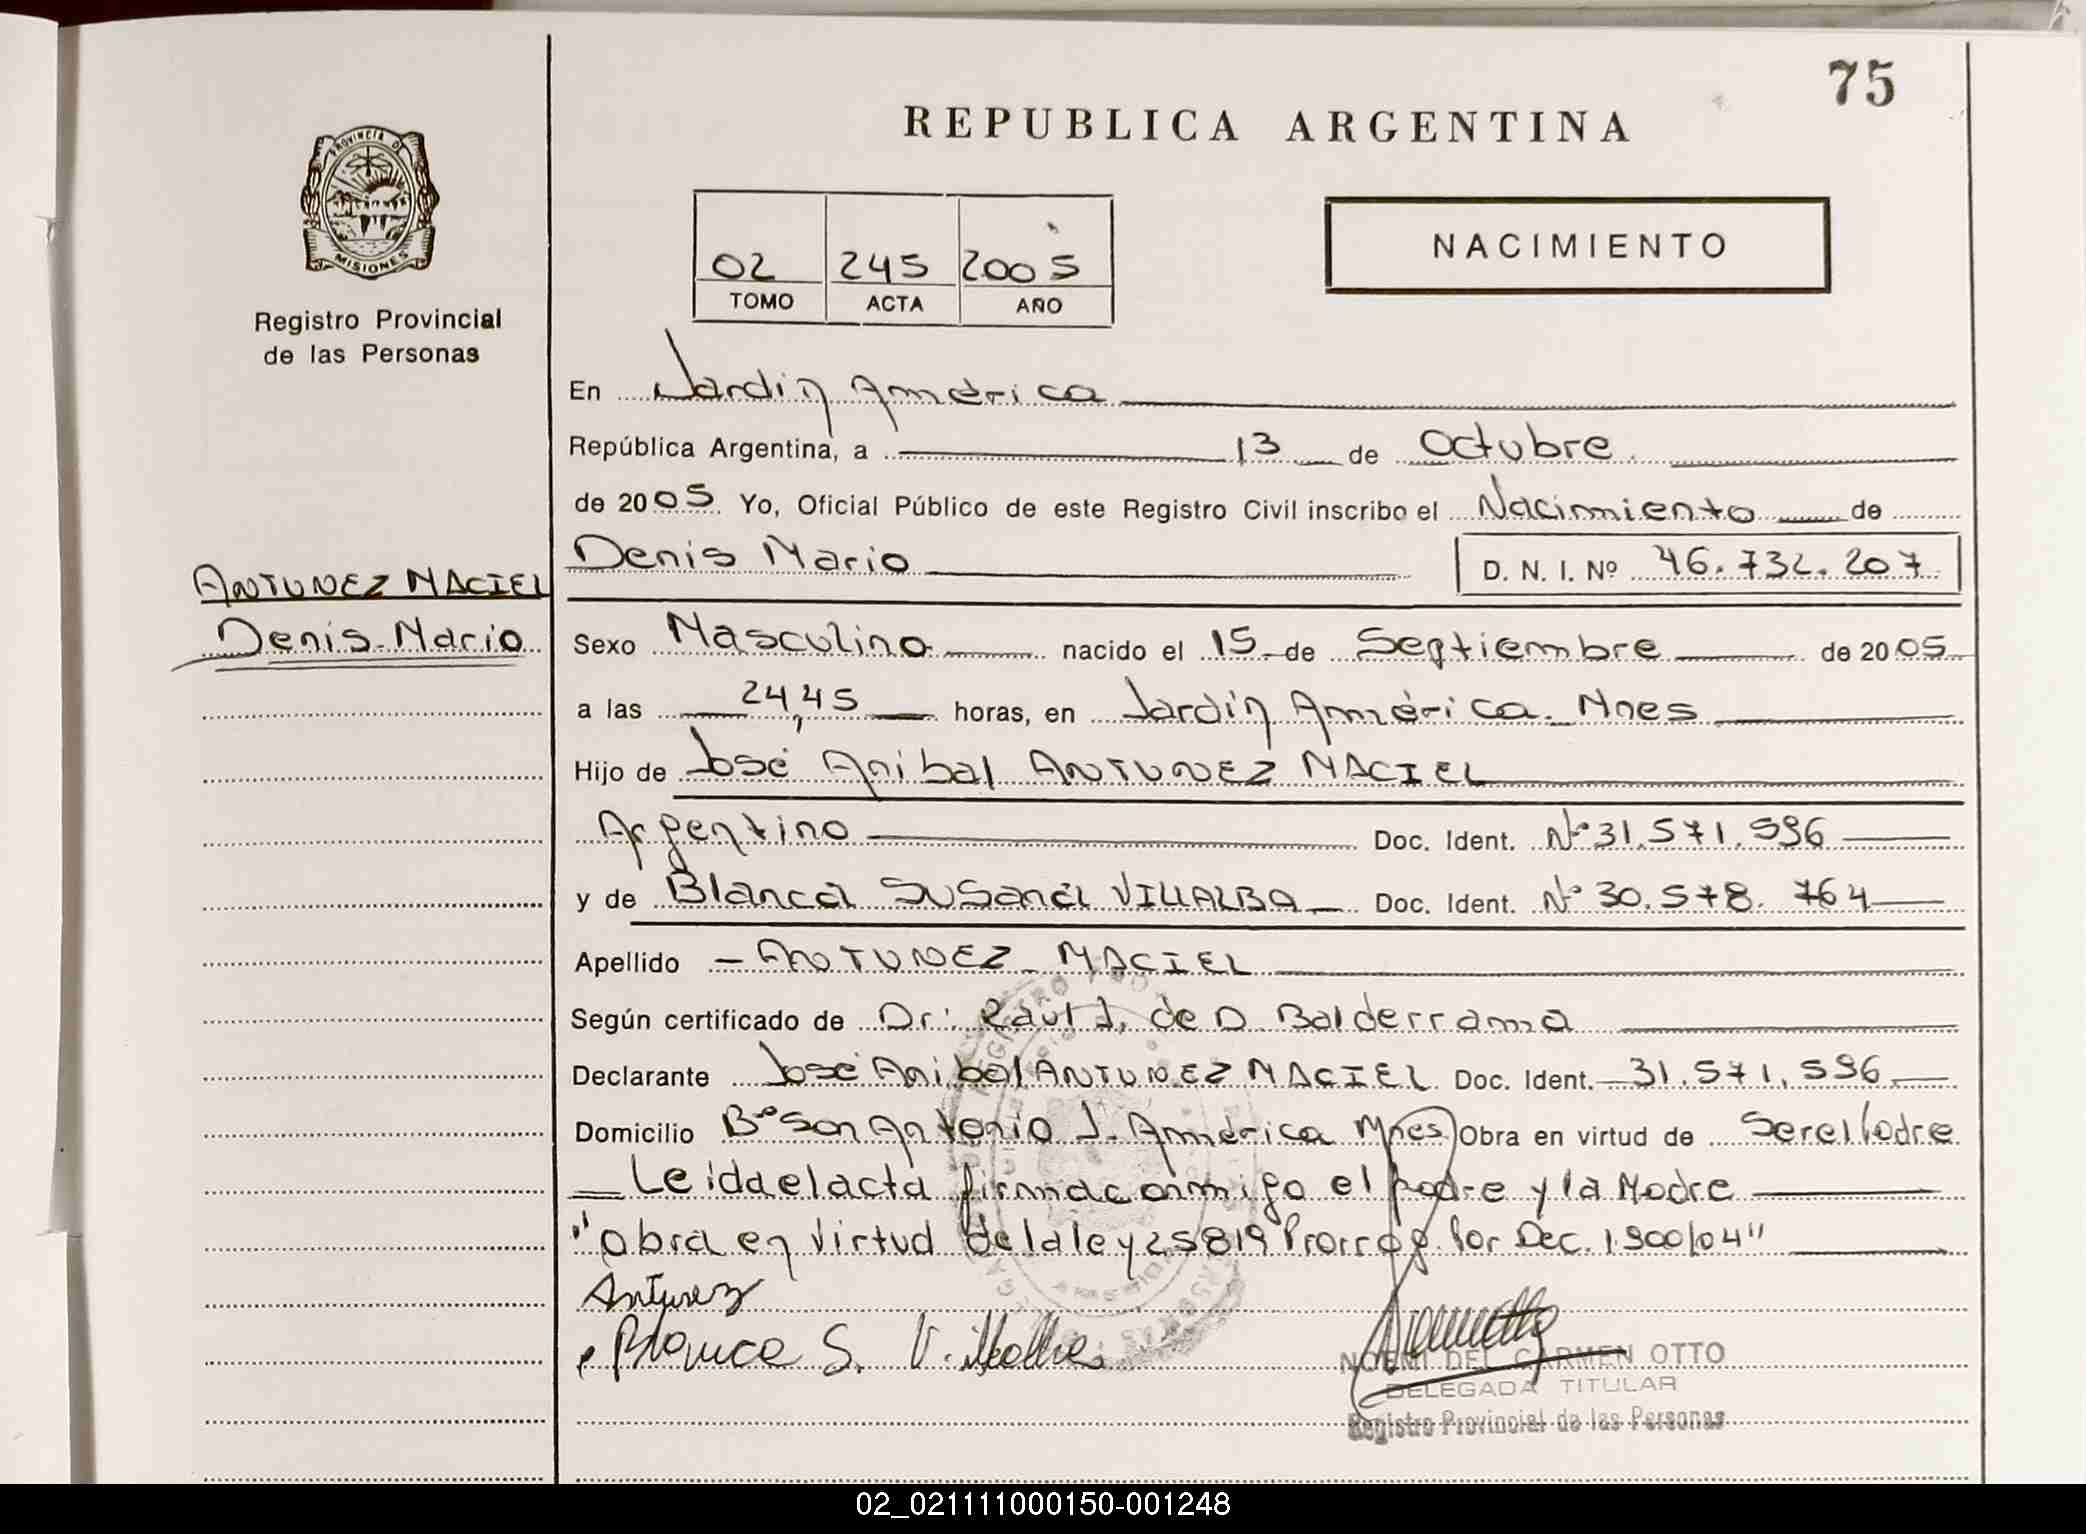 75
REPUBLICA ARGENTINA
PROVINCIA DE
MISIONES
Registro Provincial
de las Personas
02 245 2005
TOMO ACTA AÑO
NACIMIENTO
En Jardín América
República Argentina, a 13 de Octubre
de 2005 Yo, Oficial Público de este Registro Civil inscribo el Nacimiento de
Denis Mario D. N. I. Nº 46.732.207
ANTUNEZ MACIEL
Denis Mario
Sexo Masculino nacido el 15 de Septiembre de 2005
a las 24,45 horas, en Jardín América. Mnes
Hijo de José Anibal ANTUNEZ MACIEL
Argentino Doc. Ident. Nº 31.571.596
y de Blanca Susana VILLALBA Doc. Ident. Nº 30.578.764
Apellido - ANTUNEZ MACIEL
Según certificado de Dr: Raul J. de D. Balderrama
Declarante José Anibal ANTUNEZ MACIEL Doc. Ident. 31.571.596
Domicilio Bº San Antonio J. América Mnes Obra en virtud de Ser el Padre
Leida el acta firma conmigo el padre y la Madre
"Obra en virtud de la ley 25819 Prorrog. Por Dec. 1.900/04"
Antunez
Blanca S. Villalba
NOEMI DEL CARMEN OTTO
DELEGADA TITULAR
Registro Provincial de las Personas
02_021111000150-001248